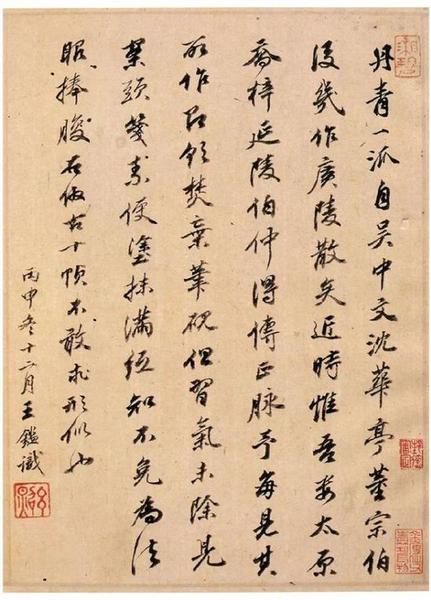 丹青一派自吳中文沈華亭董宗伯
後幾作廣陵散矣近時惟吾婁太原
喬梓延陵伯仲得傳正脉予每見其
所作即欲焚棄筆硯但習氣未除見
案頭箋素便塗抹滿紙知不免為法
眼捧腹右倣古十幀不敢求形似也
丙申冬十二月王鑑識